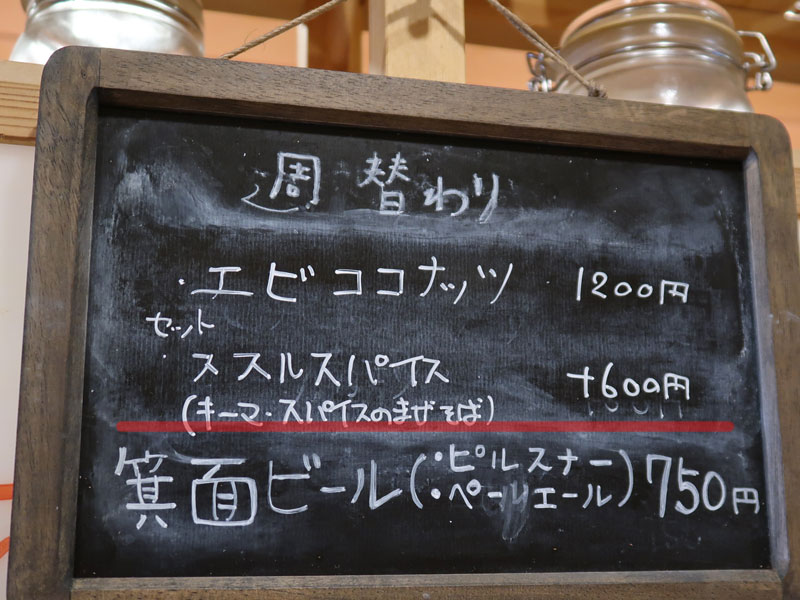 週替わり
・エビココナッツ 1200円
セット
・ススルスパイス +600円
(キーマ・スパイスのまぜそば)
箕面ビール(・ピルスナー ・ペールエール) 750円